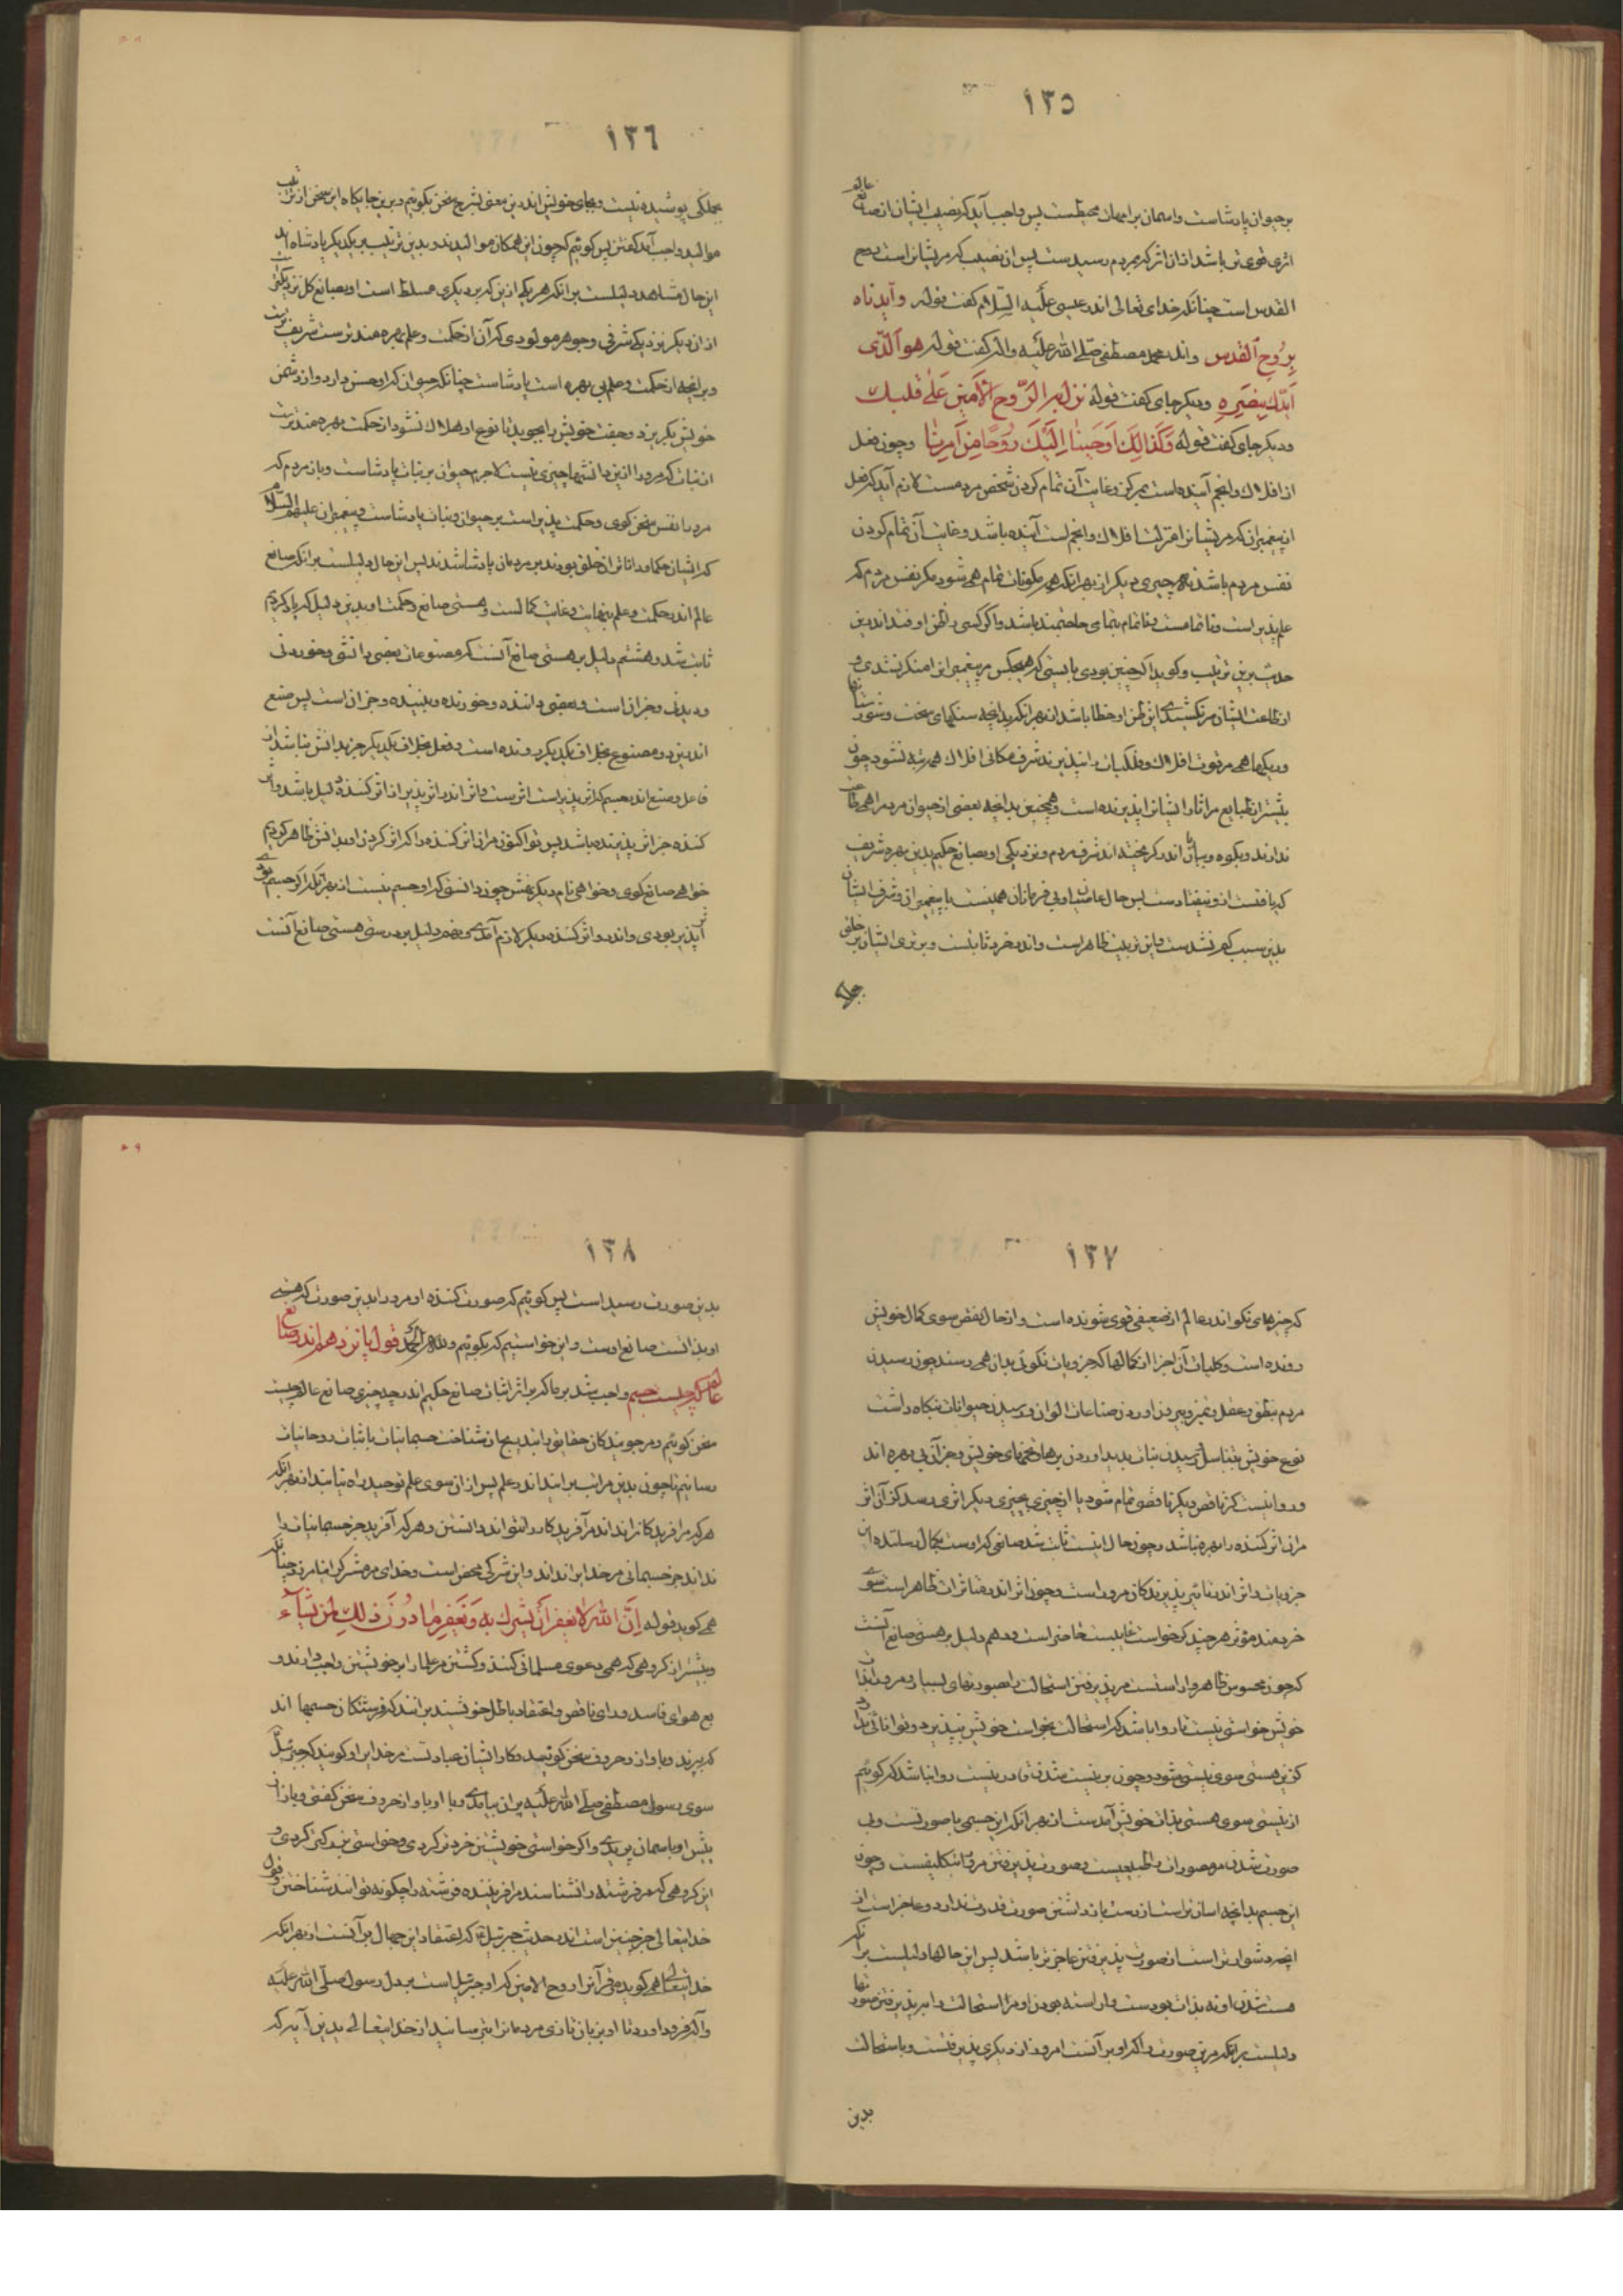 ١٣٥
بر حیوان پادشاست و آسمان بر امهات محیطست پس واجب آید که نصیب ایشان از صانع عالم
اثری قوی‌تر باشد ازان اثر که بمردم رسیدست پس آن نصیب که مریشانراست روح
القدس است چنانکه خدای تعالی اندر عیسی علیه السلام گفت قوله وایدناه
بروح القدس واندر محمد مصطفی صلی الله علیه واله گفت قوله هو الذی
ایدک بنصره ودیگر جای گفت قوله نزل به الروح الامین علی قلبک
ودیگر جای گفت قوله وکذالک اوحینا الیک روحا من امرنا وچون فعل
از افلاک وانجم آینده است بمرکز وغایت آن تمام کردن شخص مردمست لازم آید که فعل
از پیغمبران که مریشانرا منزلت افلاک وانجم است آینده باشد وغایت آن تمام کردن
نفس مردم باشد نه چیزی دیگر از بهر آنکه همه مکونات تمام همی شود مگر نفس مردم که
علم پذیر است وناتمامست وناتمام بتمامی حاجتمند باشد واگر کسی را ظن اوفتد اندرین
حدیث برین ترتیب وگوید اگر چنین بودی بایستی که هیچکس مر پیغمبران را منکر نشدی و
از طاعت ایشان سر نکشیدی این ظن او خطا باشد از بهر آنکه بدانچه سنگهای سخت وشورستانها
وریگها همی مر قوت افلاک وفلکیات را نپذیرند شرف مکانی افلاک همی تبه نشود چون
بیشتر از طبایع مر آثار ایشانرا پذیرنده است وهمچنین بدانچه بعضی از حیوان مردم را همی طاعت
ندارند وبکوه وبیابان اندر گریخته‌اند شرف مردم ونزدیکی او بصانع حکیم بدین بهره شریف
که یافتست ازو نیفتادست پس حال عامه نادان وبی فرمانان همینست با پیغمبران وشرف ایشان
بدین سبب کم نشدست واین ترتیب ظاهر است واندر خرد ثابتست وبرتری ایشان بر خلق
بجملگی
١٣٦
بجملگی پوشیده نیست وبجای خویش اندرین معنی بشرح سخن بگوئیم وبرین جایگاه این سخن از ترتیب
موالید واجب آمد گفتن پس گوئیم که چون این همگان موالیدند وبدین ترتیب بر یکدیگر پادشاه‌اند
این حال مشاهد دلیلست بر آنکه هر یکی ازین که بر دیگری مسلط است او بصانع کل نزدیکتر
ازان دیگر نزدیکی شرفی وجوهر مولودی که آن از حکمت وعلم بهره‌مندترست شریفترست
وبر آنچه از حکمت وعلم بی بهره است پادشاست چنانکه حیوان که او حس دارد واز دشمن
خویش بگریزد وجفت خویش را بجوید تا نوع او هلاک نشود از حکمت بهره‌مندترست
از نبات که مرو را ازین دانشها چیزی نیست لاجرم حیوان بر نبات پادشاست وباز مردم که
مر با نفس سخن گوی وحکمت پذیر است بر حیوان ونبات پادشاست وپیغمبران علیهم السلام
که ایشان حکما وداناتران خلق بودند بر مردمان پادشا شدند پس این حال دلیلست بر آنکه صانع
عالم اندر حکمت وعلم بنهایت وغایت کمالست وهستی صانع وحکمت او بدین دلیل که یاد کردیم
ثابت شد وهشتم دلیل بر هستی صانع آنست که مصنوعات بعضی دانشی وخوردنی
ودیدنی وجز آن است وبعضی داننده وخورنده وبیننده وجز آن است پس صنع
اندرین دو مصنوع بخلاف یکدیگر رونده است وفعل بخلاف یکدیگر جز بدانش نباشد از
فاعل وصنع اندر جسم که اثر پذیر است اثرست واثر اندر اثر پذیر از اثر کننده دلیل باشد واثر
کننده جز اثر پذیرنده باشد پس تو اکنون مر آن اثر کننده را که اثر کردن او بدانش ظاهر کردیم
خواهی صانع گوی وخواهی نام دیگر نهش چون دانستی که او جسم نیست از بهر آنکه اگر جسم بودی
اثر پذیر بودی واندرو اثر کننده دیگر لازم آمدی ونهم دلیل بر درستی هستی صانع آنست
١٣٧
که چیزهای نکو اندر عالم از ضعیفی قوی شونده است واز حال نقص سوی کمال خویش
رونده است وکلیات آن اجزا ازان کمالها که جزویات نکوئی بدان همی رسند چون رسیدن
مردم بنطق وعقل وتمیز وبیرون آوردن صناعات الوان ورسیدن حیوانات بنگاه داشت
نوع خویش بتناسل ورسیدن نبات بدید آوردن برها وتخمهای خویش وجز آن بی بهره‌اند
وروا نیست کز ناقص دیگر ناقص تمام شود یا از چیزی بچیزی دیگر اثری رسد کز آن اثر
مر آن اثر کننده را بهره نباشد وچون حال اینست ثابت شد صانعی که اوست بکمال رساننده این
جزویات واثر اندر تاثیر پذیرندگان مرو راست وچون اثر اندر متاثران ظاهر است سوی
خردمند مؤثر هر چند که خواست غایبست حاضر است ودهم دلیل بر هستی صانع آنست
که چون محسوس ظاهر وآراستست مر پذیرفتن استحالت را بصورتهای بسیار ومرو را بذات
خویش خواستی نیست تا روا باشد که استحالت بخواست خویش بپذیرد وتوانائی ندارد
کزین هستی سوی نیستی شود وچون بر نیست شدن قادر نیست روا نباشد که گوئیم
از نیستی سوی هستی بذات خویش آمدست از بهر آنکه این جسمی با صورتست وبی
صورت شدن مر مصورات را طبیعیست وصورت پذیرفتن مرو را بتکلیفست وچون
این جسم بدانچه آسان‌تر است از دست باز داشتن صورت قدرت ندارد وعاجز است از
آنچه دشوارتر است از صورت پذیرفتن عاجزتر باشد پس این حالها دلیلست بر آنکه
هست شدن او نه بذات بودست وآراسته بودن او مر استحالت را بپذیرفتن صورتها
دلیلست بر آنکه مرین صورت را که او بر آنست امروز از دیگری پذیرفتست وباستحالت
بدین
١٣٨
بدین صورت رسیدست پس گوئیم که صورت کننده او مرو را بدین صورت که هستی
او بدانست صانع اوست واین خواستیم که بگوئیم ولله الحمد قول پانزدهم اندر صانع
عالم که چیست جسم واجب شد بر ما که بر اثر اثبات صانع حکیم اندر چه چیزی صانع عالم جسم
سخن گوئیم ومر جویندگان حقایق را بتدریج از شناخت جسمانیات باثبات روحانیات
رسانیم تا چون بدین مراتب برآیند اندر علم پس ازان سوی علم توحید راه یابند از بهر آنکه
هر که مر آفریدگانرا نداند مر آفریدگار را نتواند دانستن وهر که آفرید جز جسمانیات را
نداند جز جسمانی مر خدایرا نداند واین شرکی محض است وخدای مر مشرک را نیامرزد چنانکه
همی گوید قوله ان الله لا یغفر ان یشرک به ویغفر ما دون ذلک لمن یشاء
وبیشتر از گروهی که همی دعوی مسلمانی کنند وکشتن مر علما را بر خویشتن واجب دارند و
بع هوای فاسد ورای ناقص واعتقاد باطل خویشند بر آنند که فرشتگان جسمها اند
که بپرند وبآواز وحروف سخن گویند وکار ایشان عبادتست مر خدایرا وگویند که جبرئیل
سوی رسول مصطفی صلی الله علیه پران بیامدی وبا او بآواز وحروف سخن گفتی وباز از
پیش او بآسمان پریدی واگر خواستی خویشتن خردتر کردی وخواستی بزرگتر کردی و
این گروهی که مر فرشته را نشناسند مر آفریننده فرشته را چگونه توانند شناختن وقول
خدایتعالی جز چنین است اندر حدیث جبرئیل که اعتقاد این جهال بر آنست از بهر آنکه
خدایتعالی همی گوید مر قرآنرا روح الامین که او جبرئیل است بر دل رسول صلی الله علیه
وآله فرود آورد تا او بزبان تازی مردمانرا بترساند از خدایتعالی بدین آیه که